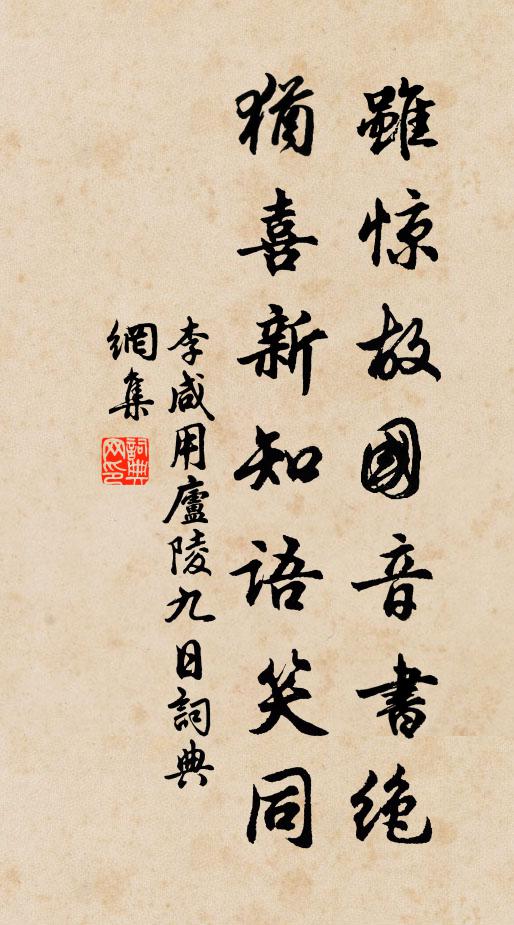 雖惊故國音書绝
猶喜新知語笑同
李咸用廬陵九日詞典
網集
詞典
网印